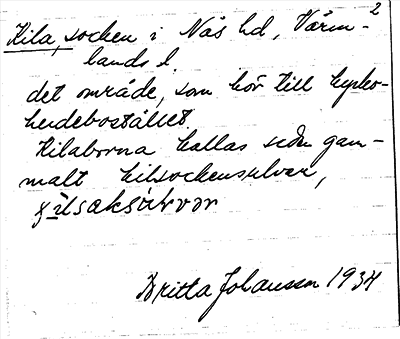 2
Kila, socken i Näs hd, Värm-
lands l.
det område, som hör till kyrko-
herdebostället
Kilaborna kallas sedan gam-
malt kilsockensulvar,
Britta Johansson 1934